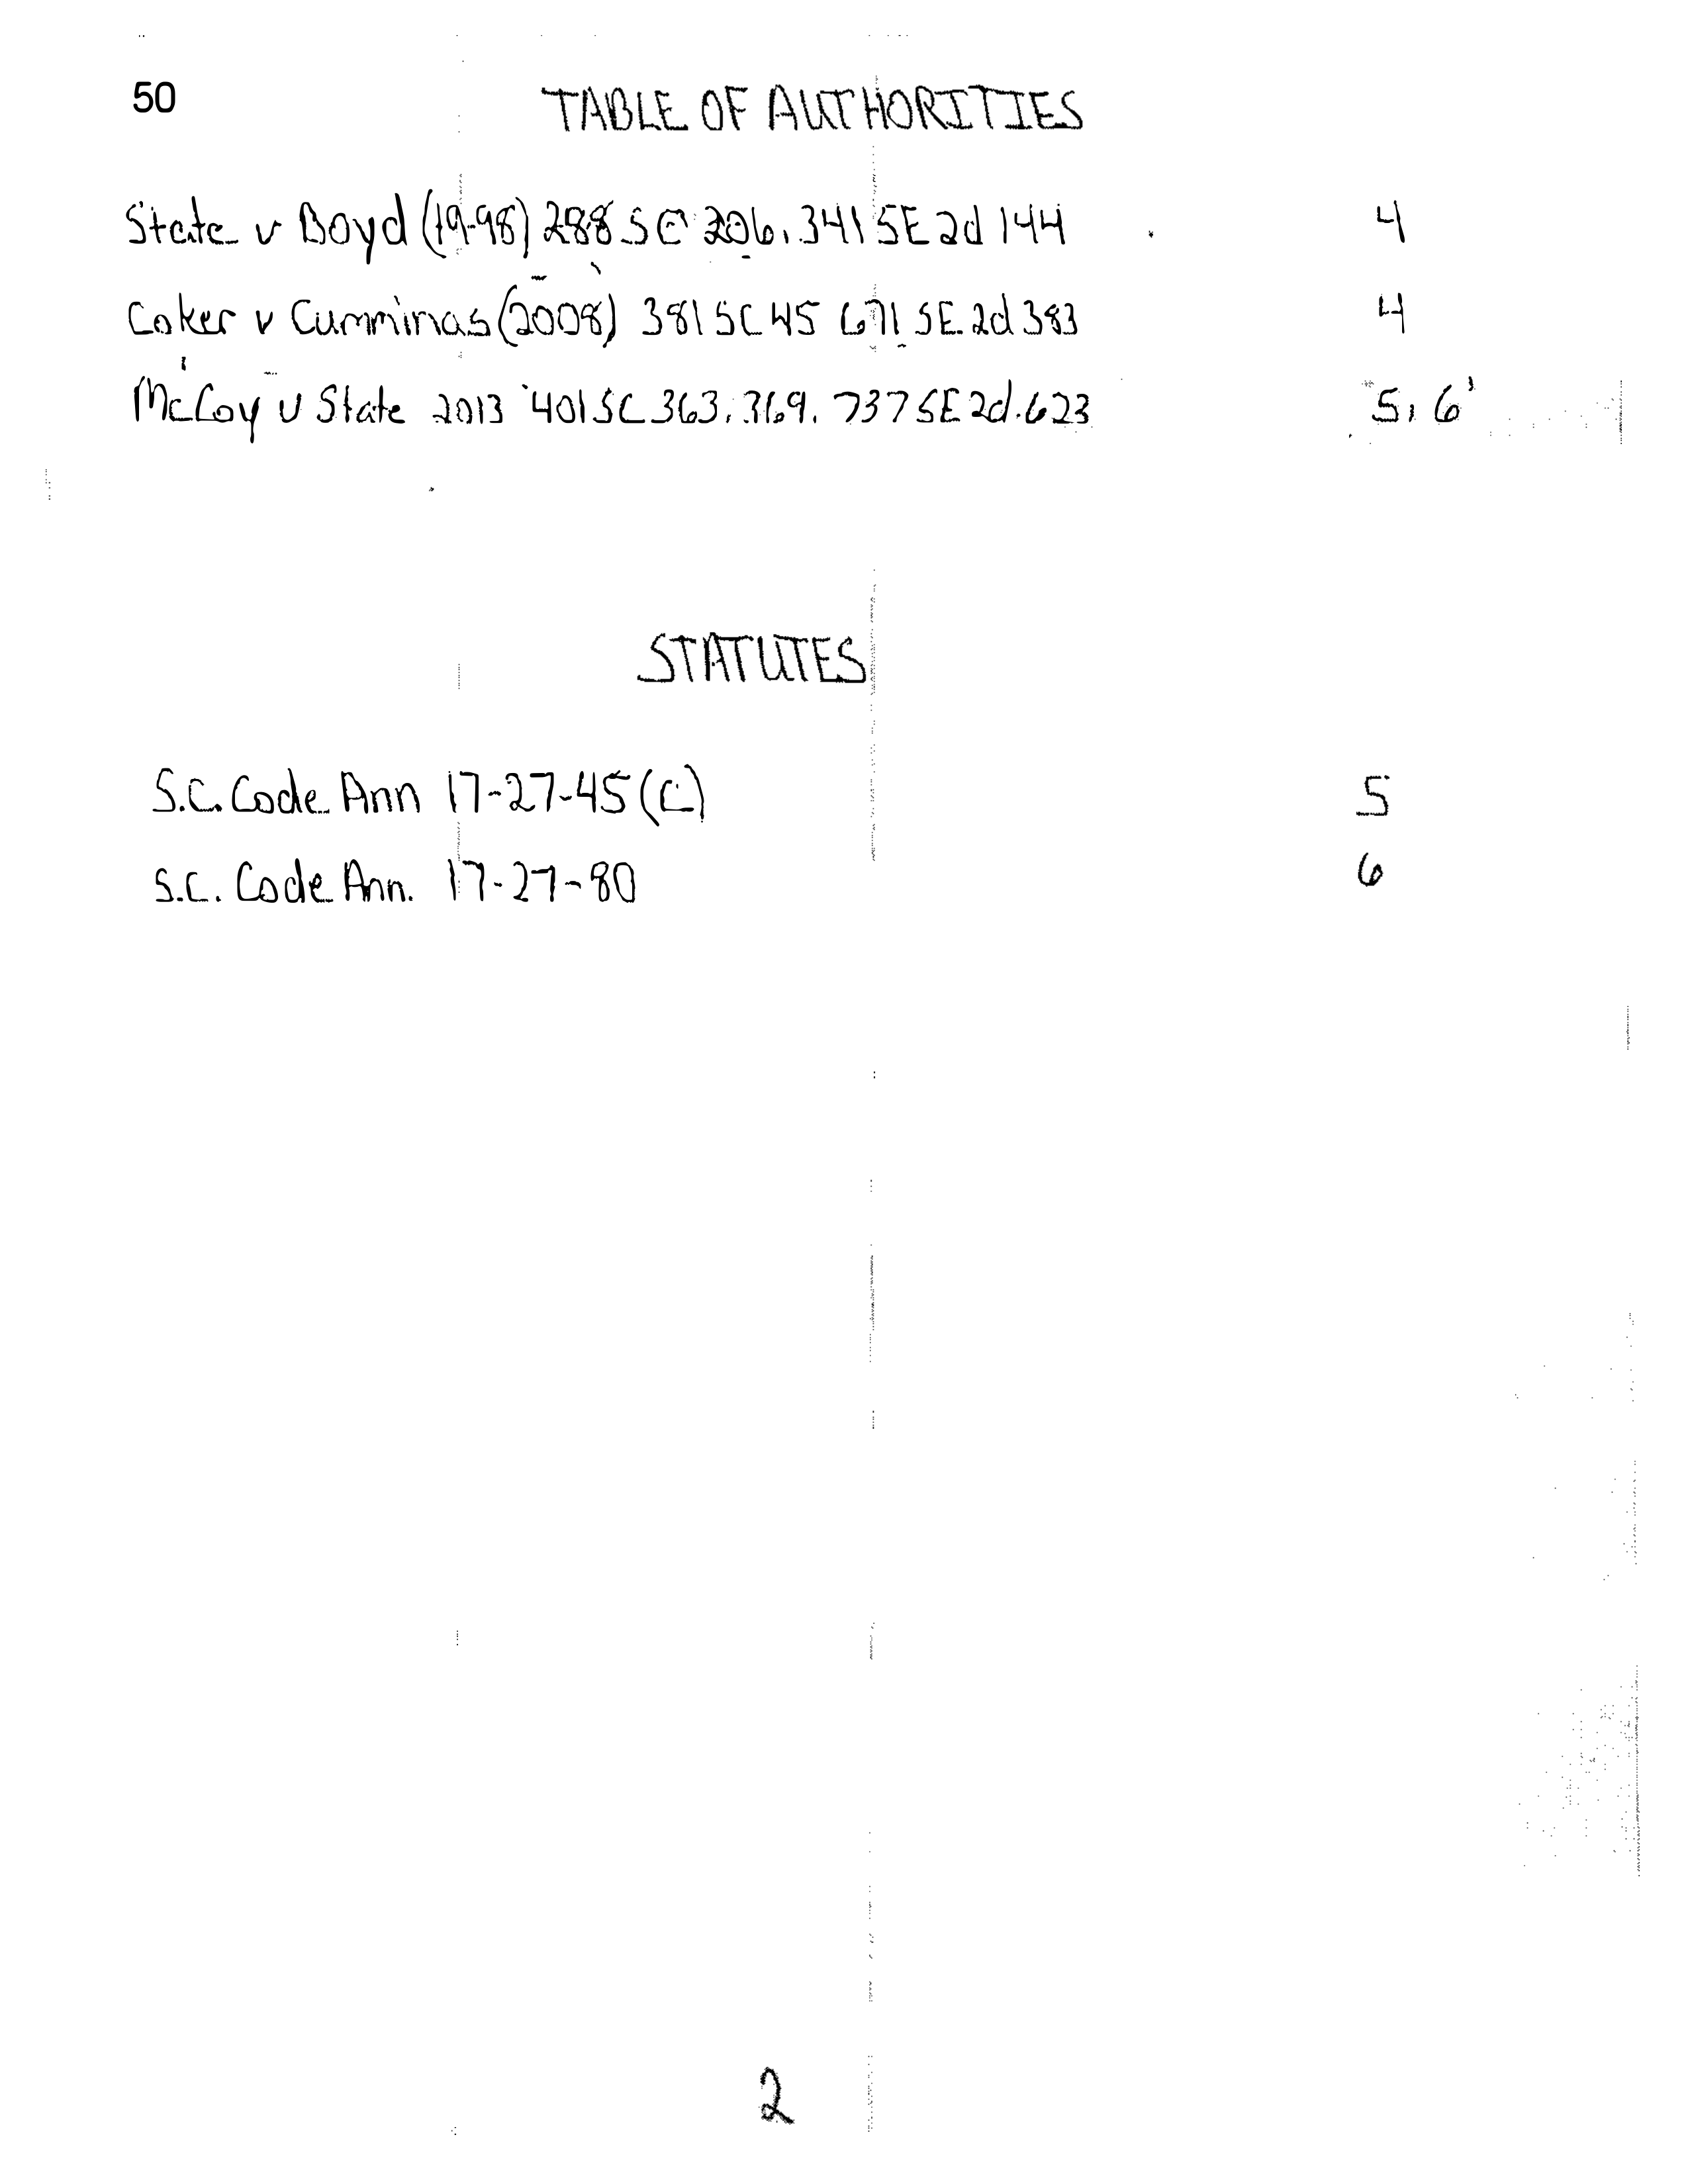 50
TABLE OF AUTHORITIES
State v Boyd (19-98) 288 SC 206, 341 SE 2d 144 4
Coker v Cummings (2008) 381 SC 45 671 SE 2d 383 4
McCoy v State 2013 401 SC 363, 369, 737 SE 2d. 623 5, 6
STATUTES
S.C. Code Ann 17-27-45 (C) 5
S.C. Code Ann. 17-27-80 6
2